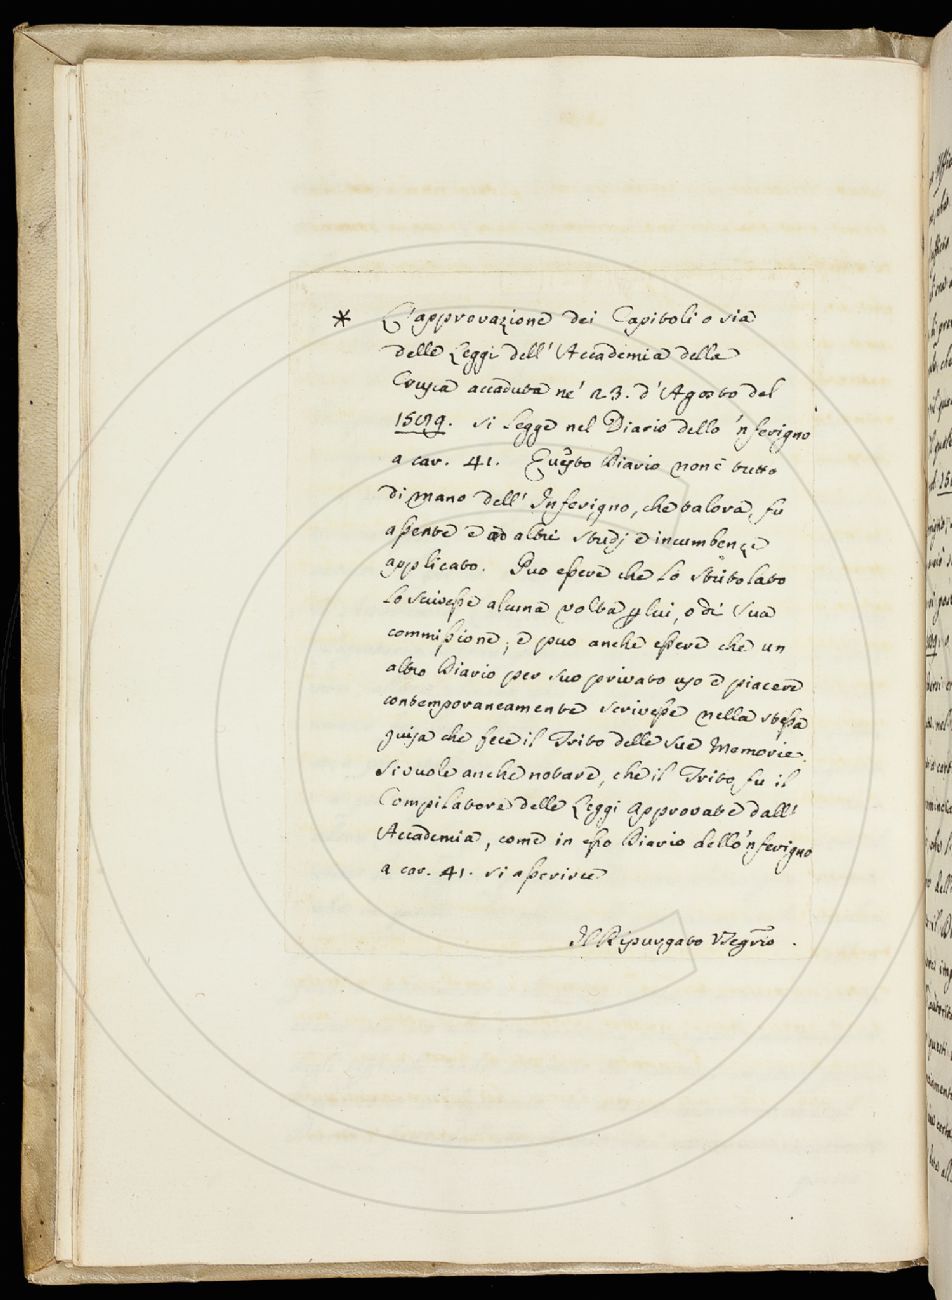 * L'approvazione dei Capitoli o sia
delle Leggi dell'Accademia della
Crusca accaduta ne' a 3. d'Agosto del
1589. si legge nel Diario dello 'nferigno
a car. 41. Questo Diario non è tutto
di mano dell'Inferigno, che talora fu
assente e ad altri studj e incumbenze
applicato. Puo essere che lo Stritolato
lo scivesse alcuna volta p lui, o di sua
commissione; e puo anche essere che un
altro Diario per suo privato uso e piacere
contemporaneamente scrivesse nella stessa
guisa che fece il Trito delle sue Memorie.
Si vuole anche notare, che il Trito fu il
Compilatore delle Leggi approvate dall'
Accademia, come in esso Diario dello 'nferigno
a car. 41. si asserisce
Il Ripurgato Segrio.